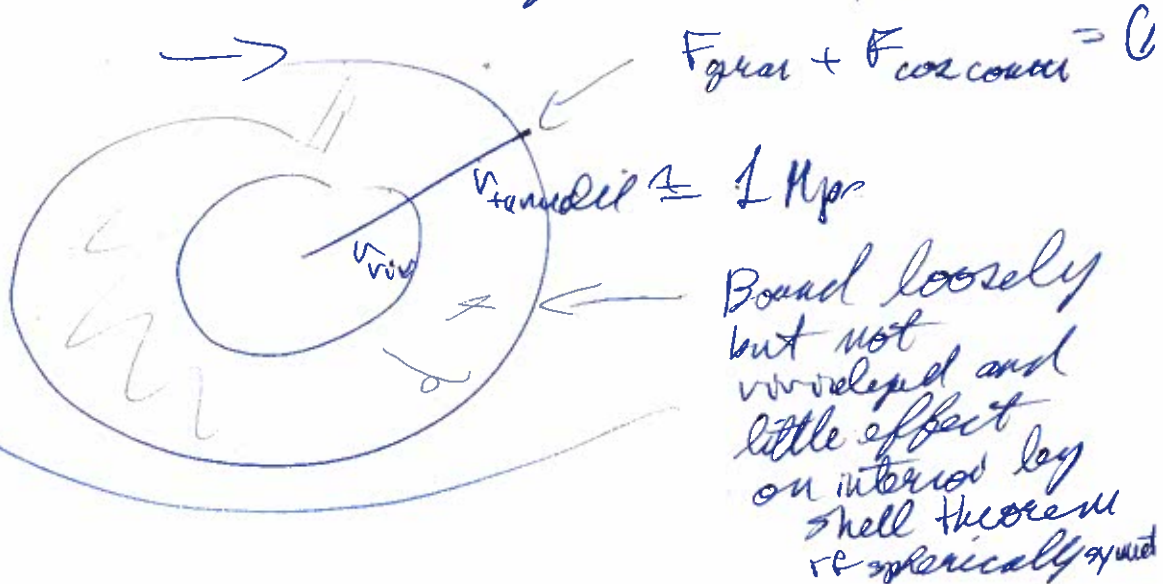 F_grav + F_cos const = 0
r_turndil ≐ 1 Mpc
r_vir
Bound loosely
but not
virialized and
little effect
on interior by
shell theorem
if spherically symmet